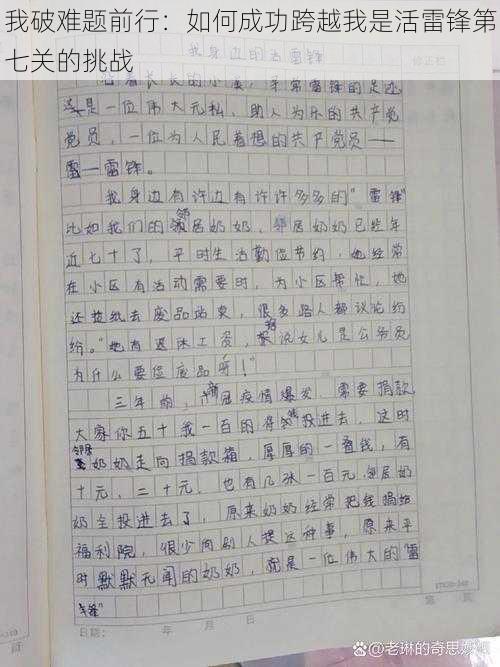 我破难题前行：如何成功跨越我是活雷锋第
七关的挑战
我身边的活雷锋
沿着长长的小溪，寻常雷锋的足迹
这是一位伟大无私、助人为乐的共产党
党员，一位为人民着想的共产党员——
雷—雷锋。
我身边有许边有许许多多的"雷锋"
比如我们的邻居奶奶，邻居奶奶已经年
近七十了，平时生活勤俭节约，她经常
在小区有活动需要时，为小区帮忙，她
还捡纸去废品站卖，很多路人都议论纷
纷。"她有退休工资，据说女儿是公务员
为什么要捡废品呀！"
三年前，新冠疫情爆发，需要捐款
大家你五十我一百的将钱投进去，这时
邻居奶奶走向捐款箱，厚厚的一叠钱，有
十元、二十元、也有几张一百元，邻居奶
奶全投进去了，原来奶奶经常把钱捐给
福利院，很少向别人提这种事，原来平
时默默无闻的奶奶，就是一位伟大的雷
锋"
日期： 年 月 日
@老琳的奇思妙想